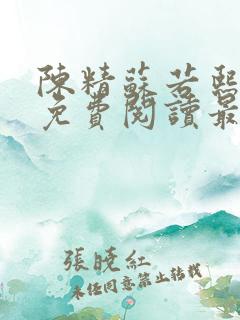 陳精蘇若熙
免費閱讀最
張曉紅
未經同意禁止轉載